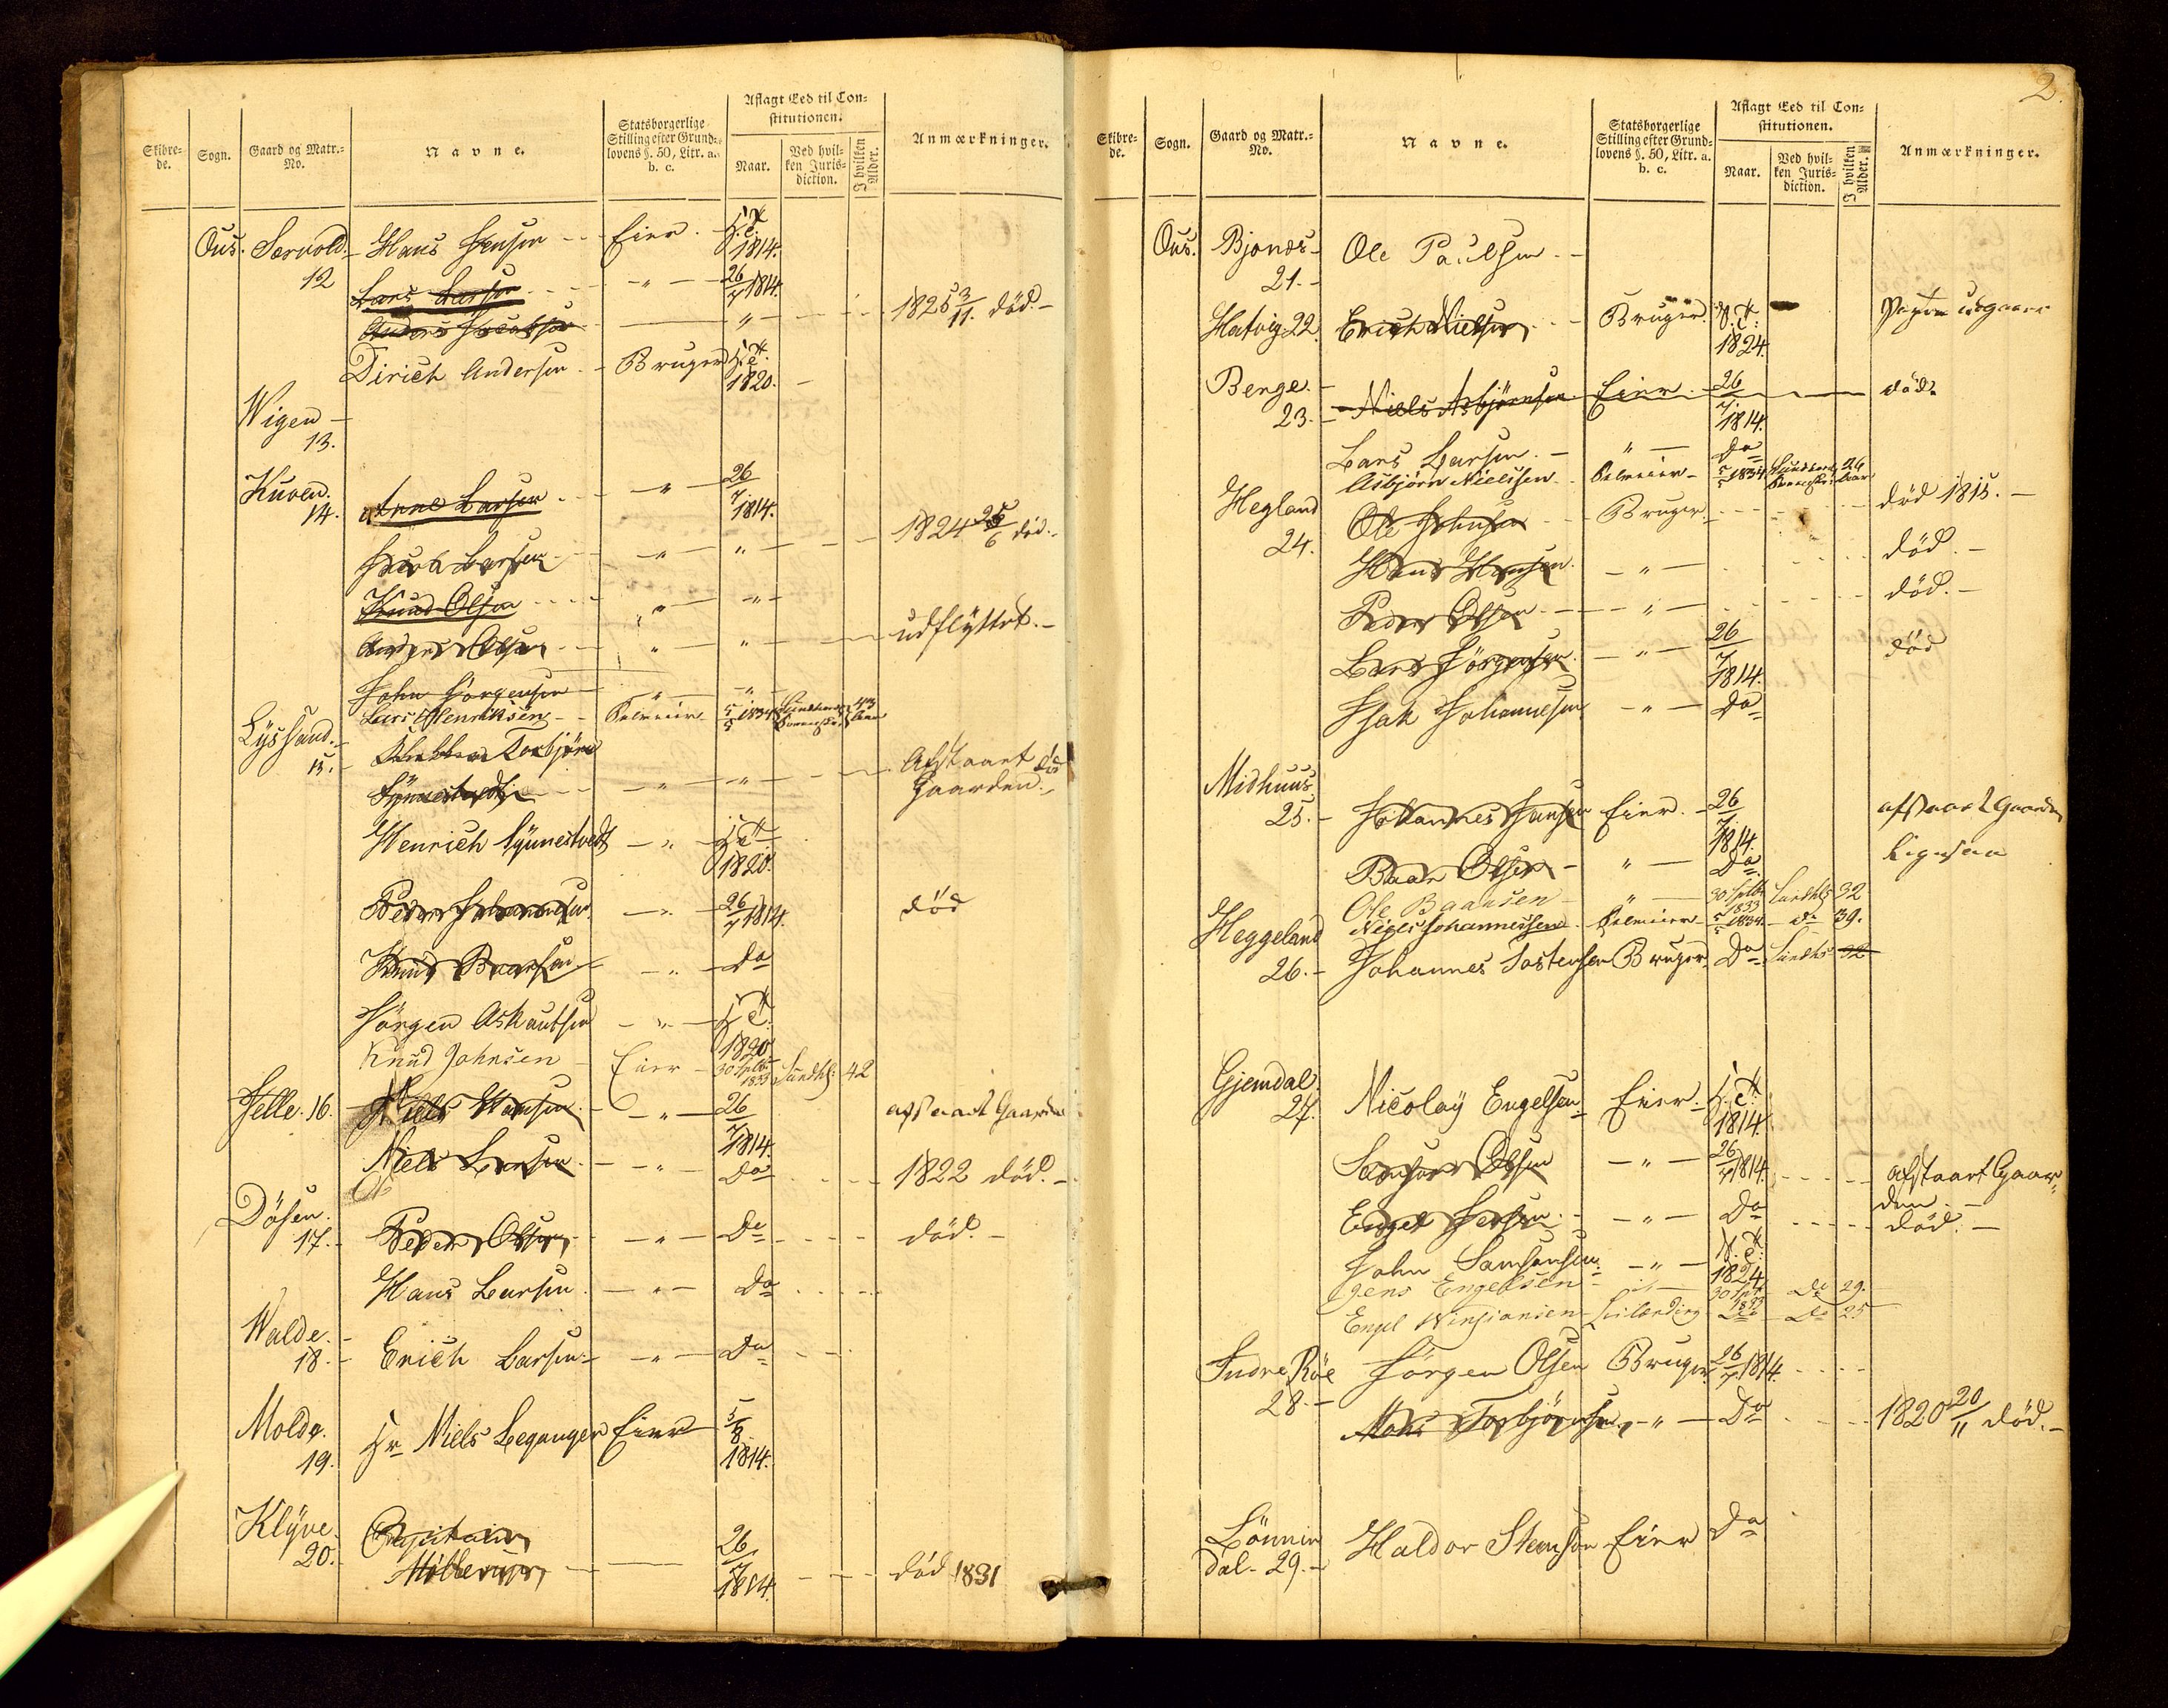 Skibre-
de.
Sogn.
Gaard og Matr.-
No.
Navne.
Statsborgerlige
Stilling efter Grund-
lovens §. 50, Litr. a.
b. c.
Aflagt Eed til Con-
stitutionen.
Naar.
Ved hvil-
ken Juris-
diction.
I hvilken
Alder.
Anmærkninger.
Ous. Særvold
12
Hans Jensen Eier
1814.
Lars Larsen 26/7 1814.
Anders 1825 3/11. död.
Dirich Andersen Bruger
1820.
Wigen
13.
Kuven.
14.
Arne Larsen 26/7
1814.
Larsen 1824 6 död.
Knud Olsen
Anders Olsen udflyttet.
John Jörgensen
Lars Henriksen Selveier 5/5 1834
Lyssand
15.
Torbjörn
Synnestvedt Afstaaet
Gaarden.
Henrich Synnestvedt
1820.
Peder Johannesen 26/7 1814. död
Knud Baarsen Do
Jörgen Askautsen
1820
Knud Johnsen Eier 30 Septb. 1833 Sundhl: 42
Helle. 16. Niels Hansen 26/7
1814. afstaaet Gaarden
Niels Larsen Do 1822 död.
Dösen.
17.
Peder Olsen Do död.
Hans Larsen Do
Walde.
18.
Erich Larsen Do
Molde.
19.
Hr Niels Leganger Eier 5/8
1814.
Klyve.
20.
Capitain
Möllerup 26/7
1814. död 1831
2.
Skibre-
de.
Sogn.
Gaard og Matr.-
No.
Navne.
Statsborgerlige
Stilling efter Grund-
lovens §. 50, Litr. a.
b. c.
Aflagt Eed til Con-
stitutionen.
Naar.
Ved hvil-
ken Juris-
diction.
I hvilken
Alder.
Anmærkninger.
Ous. Bjonæs
21.
Ole Paulsen
Hatvig 22. Erich Nielsen Bruger
1824.
Berge.
23.
Niels Asbjörnsen Eier 26/7
1814. död.
Lars Larsen Do
Asbjörn Nielssen Selveier 5/5 1834 26
Hegland
24.
Ole Johnsen Bruger död 1815.
Hans Hansen död.
Peder Olsen död.
Lars Jörgensen 26/7
1814. död
Isak Johannesen Do
Midhuus
25.
Johannes Hansen Eier 26/7
1814. afstaaet Gaarden
Baar Olsen Do ligesaa
Ole Baarsen 30 Septb. 1833 Sundhl: 32
Niels Johannessen Selveier 5/5 1834 do 39.
Heggeland
26.
Johannes Tostensen Bruger Do Sundhl 32
Gjemdal.
27.
Nicolay Engelsen Eier
1814.
Samson Olsen 26/7 1814. afstaaet Gaar-
den.
Engel Jensen Do död.
John Samsonsen
1824
Jens Engelsen 30 Septb. 1833 Do 29.
Engel Leilending Do Do 25
Indre Röe
28.
Jörgen Olsen Bruger 26/7 1814.
Mons Torbjörnsen Do 1820 20/11 död.
Lönnin
dal. 29.
Haldor Steenson Eier Do